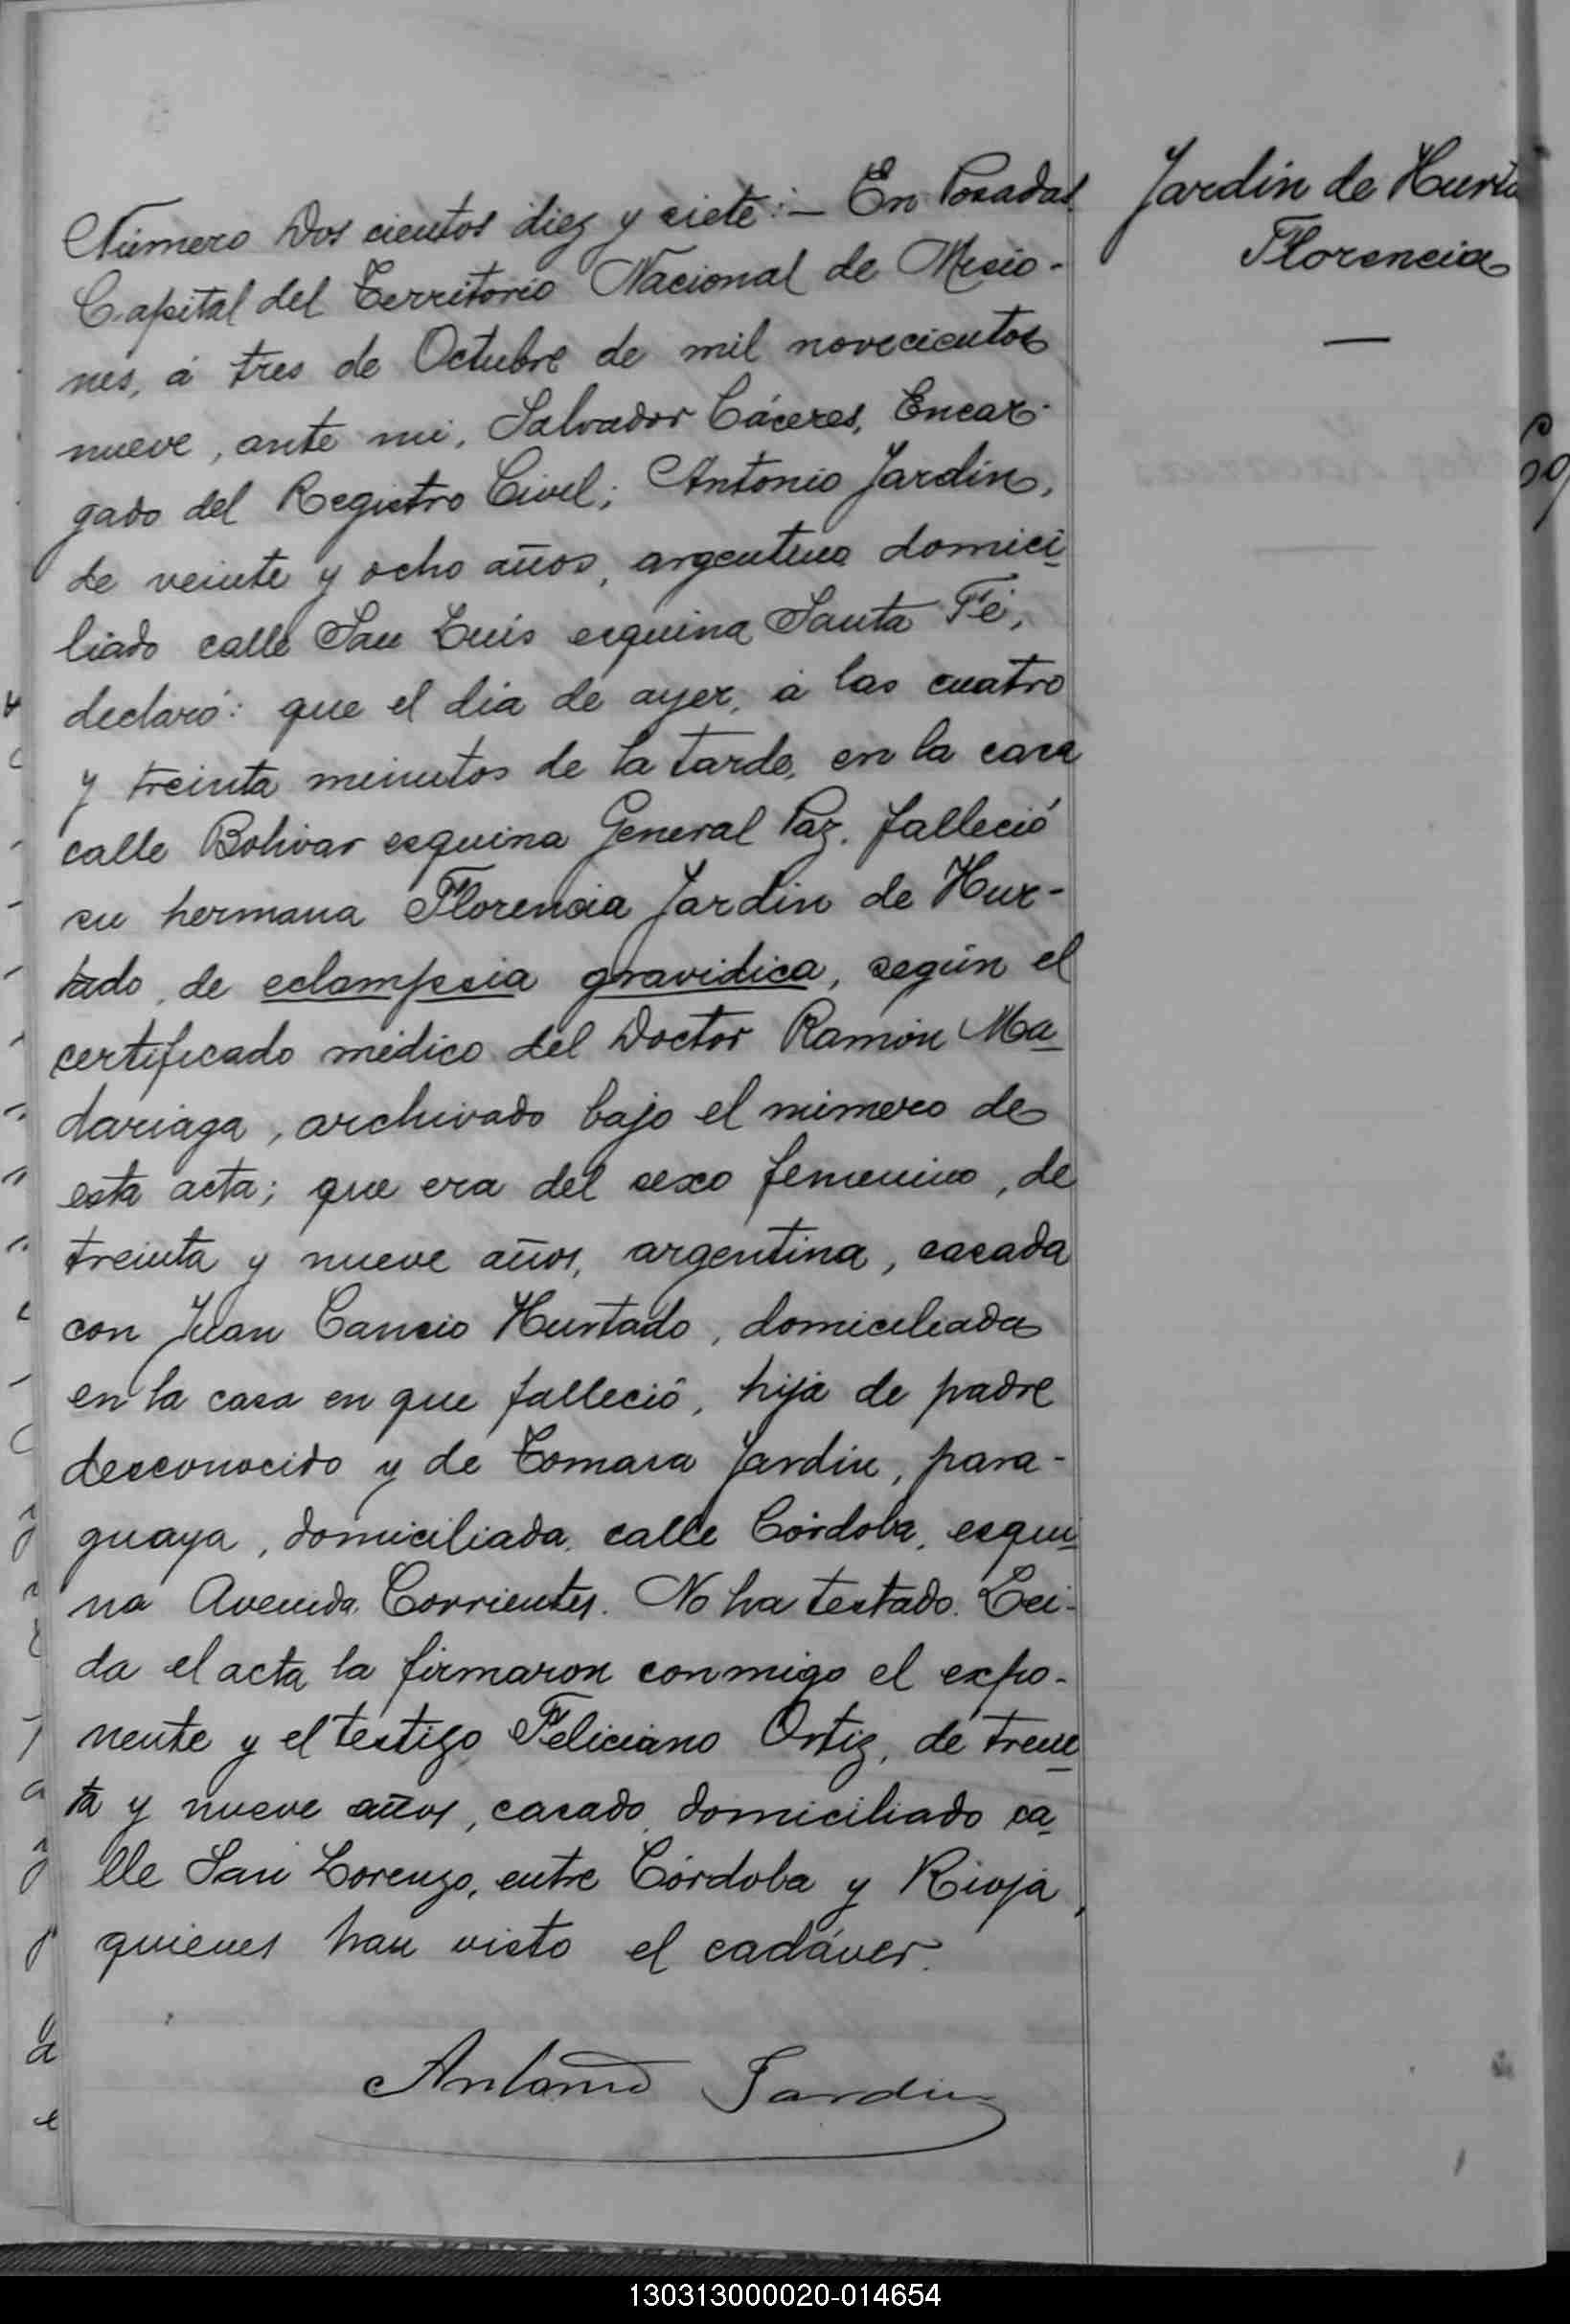 Jardin de Hurta
Florencia
Número Dos cientos diez y siete:— En Posadas
Capital del Territorio Nacional de Misio-
nes, á tres de Octubre de mil novecientos
nueve, ante mi, Salvador Cáceres, Encar-
gado del Registro Civil; Antonio Jardin,
de veinte y ocho años, argentino domici-
liado calle San Luis esquina Santa Fé,
declaró: que el dia de ayer, á las cuatro
y treinta minutos de la tarde, en la casa
calle Bolivar esquina General Paz, falleció
su hermana Florencia Jardin de Hur-
tado, de eclampsia gravidica, según el
certificado médico del Doctor Ramón Ma-
dariaga, archivado bajo el número de
esta acta; que era del sexo femenino, de
treinta y nueve años, argentina, casada
con Juan Cancio Hurtado, domiciliada
en la casa en que falleció, hija de padre
desconocido y de Tomasa Jardin, para-
guaya, domiciliada calle Córdoba, esqui-
na Avenida Corrientes. No ha testado. Lei-
da el acta la firmaron conmigo el expo-
nente y el testigo Feliciano Ortiz, de trein-
ta y nueve años, casado, domiciliado ca-
lle San Lorenzo, entre Córdoba y Rioja,
quienes han visto el cadáver.
Antonio Jardin
130313000020-014654